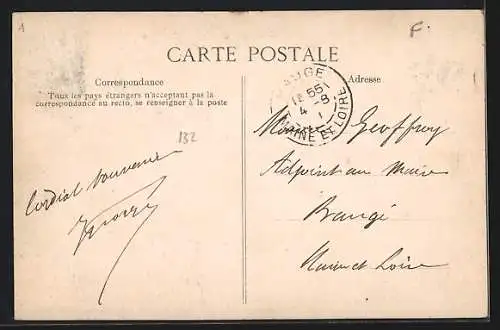 1
F.
CARTE POSTALE
Correspondance
Tous les pays étrangers n'acceptent pas la
correspondance au recto, se renseigner à la poste
132
Cordial souvenir
Adresse
BAUGÉ
12 55
4 - 8
MAINE ET LOIRE
Geoffroy
Adjoint au Maire
Baugé
Maine et Loire